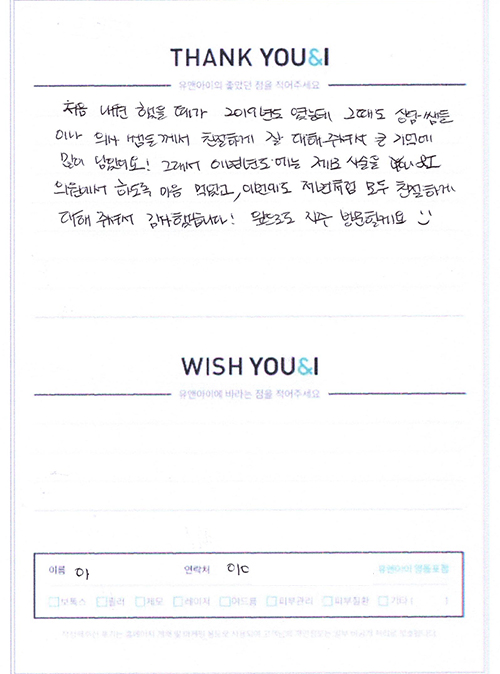 THANK YOU&I
유앤아이의 좋았던 점을 적어주세요
처음 내원 했을 때가 2019년도 였는데 그때도 상담쌤들
이나 의사 쌤들께서 친절하게 잘 대해주셔서 큰 기억에
많이 남았어요! 그래서 이번년도에는 제모 시술을 you &I
의원에서 하도록 마음 먹었고, 이번에도 저번처럼 모두 친절하게
대해 주셔서 감사했습니다! 앞으로도 자주 방문할게요
WISH YOU&I
유앤아이에 바라는 점을 적어주세요
이름 연락처 010 유앤아이 명동포점
보톡스 필러 제모 레이저 여드름 피부관리 피부질환 기타 ( )